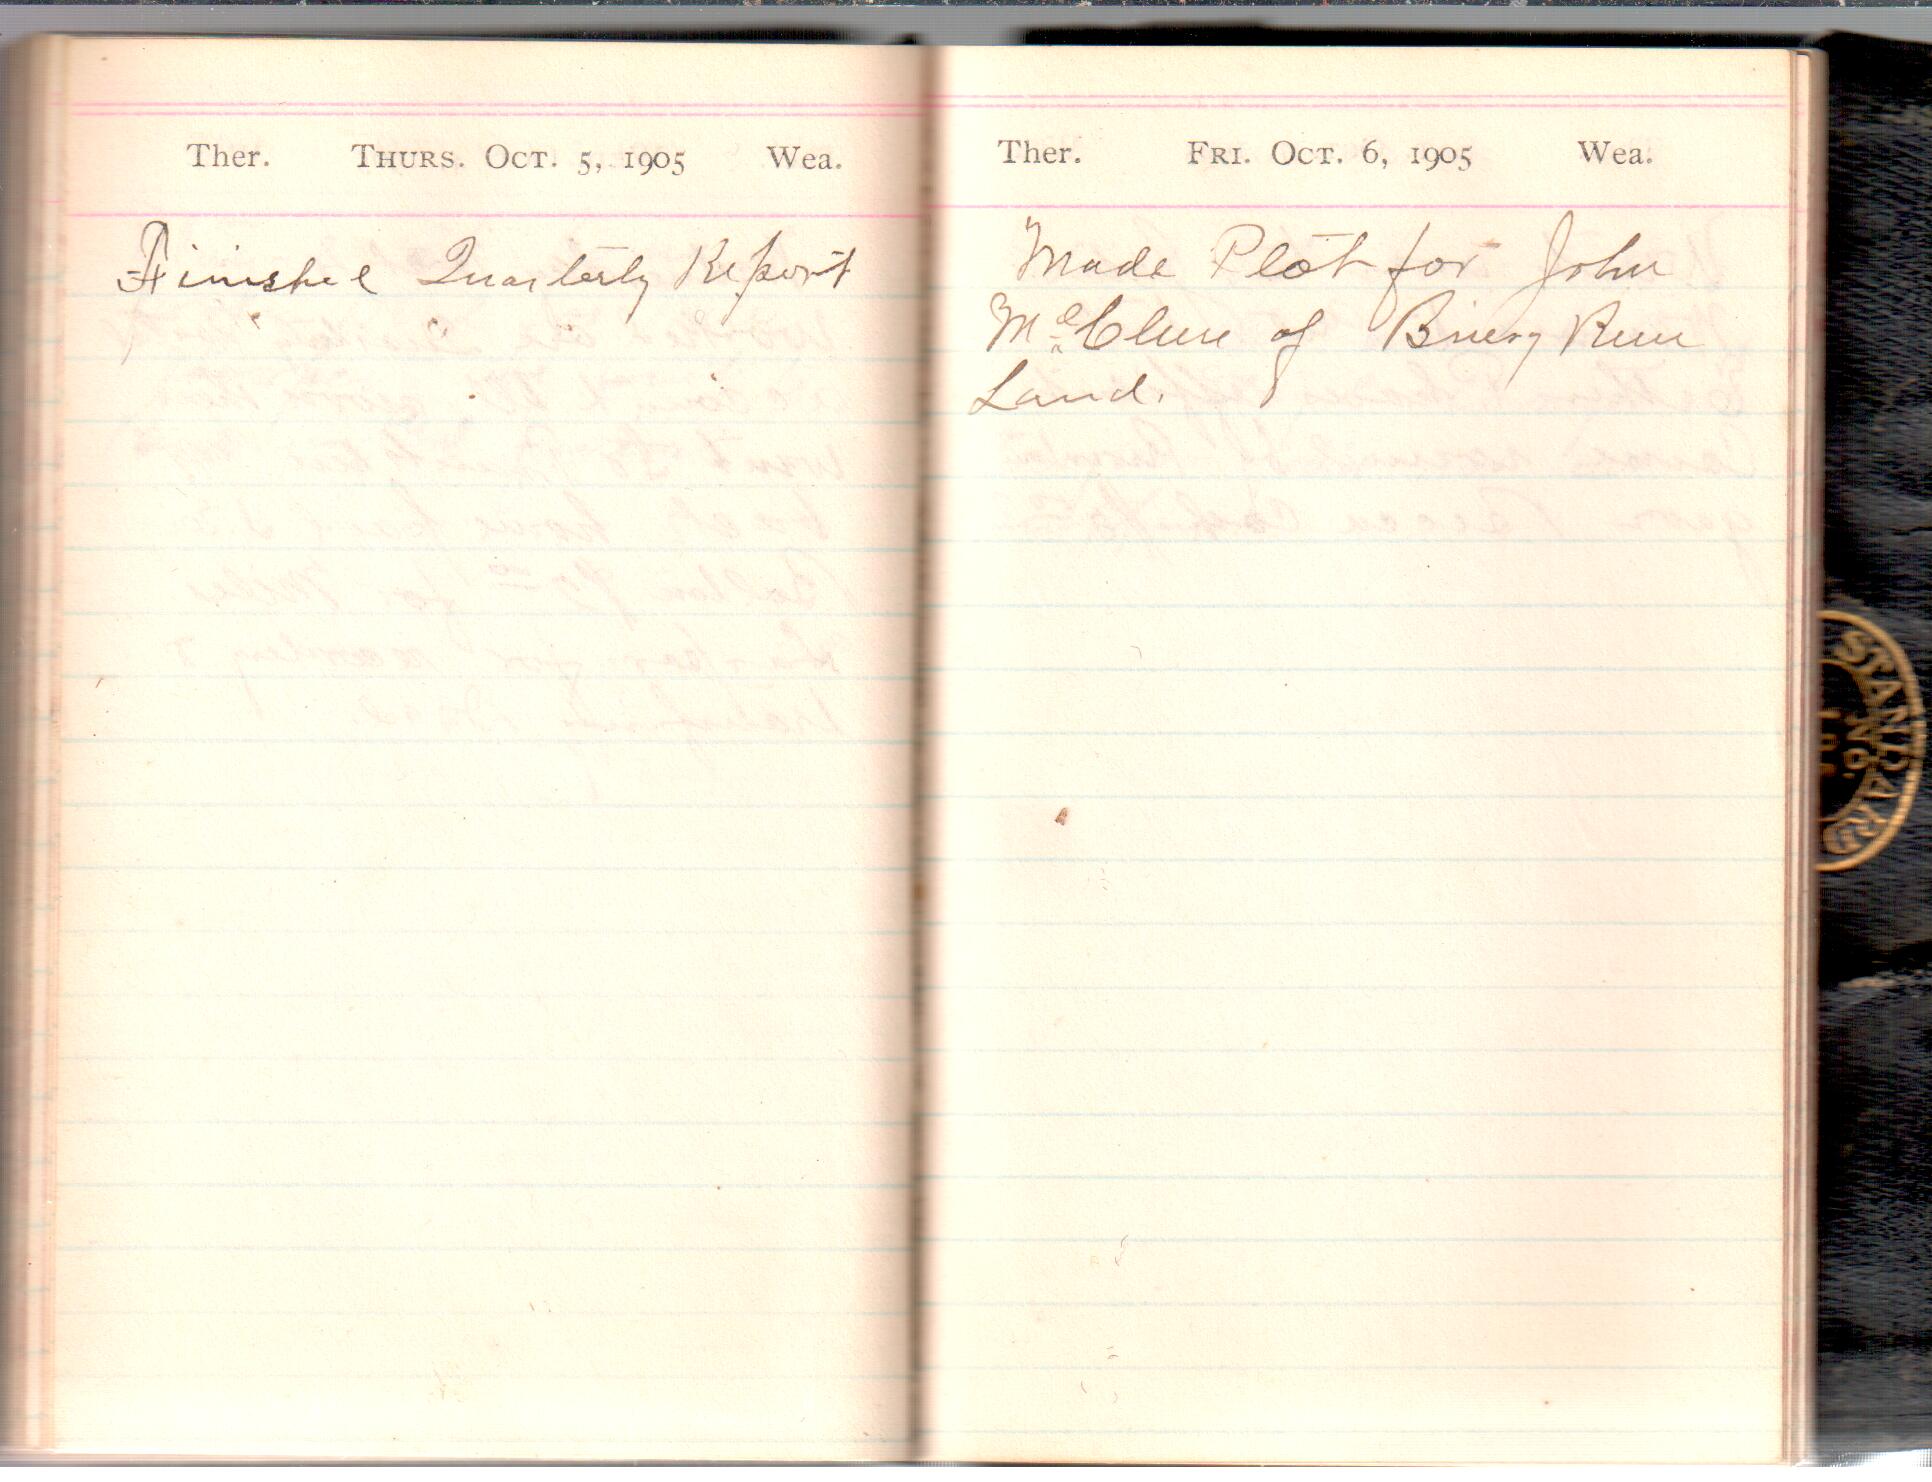 Ther. Thurs. Oct. 5, 1905 Wea.
Finished Quarterly Report
Ther. Fri. Oct. 6, 1905 Wea.
Made Plot for John
McClure of Briery Run
Land.
STANDARD
NO.